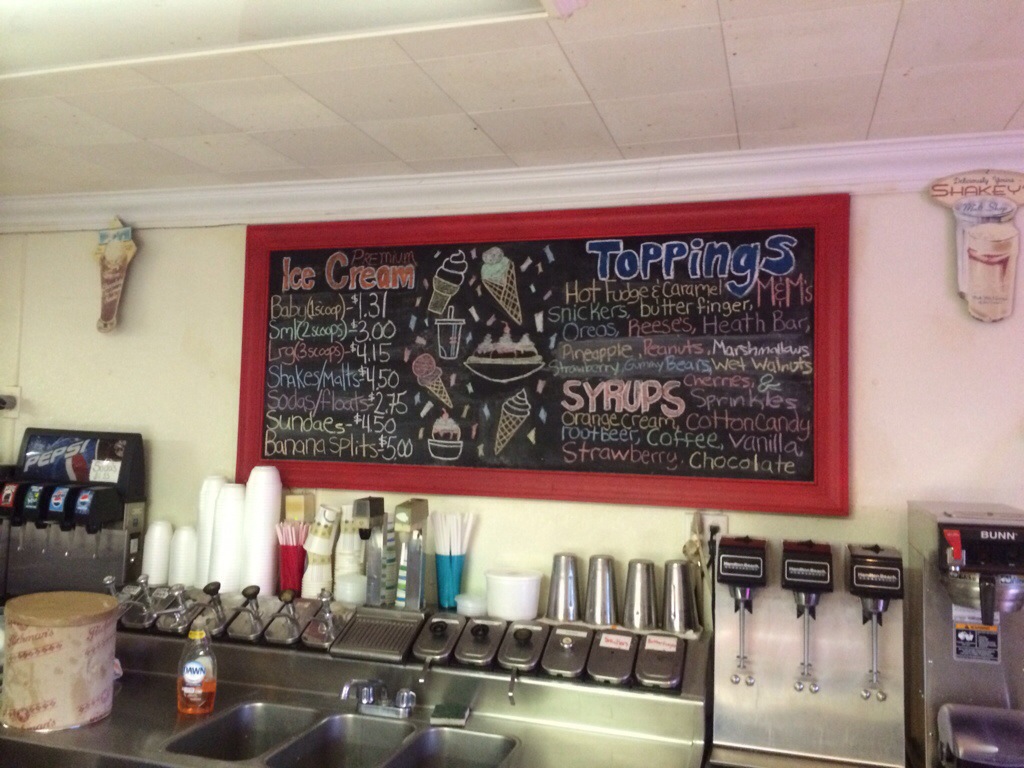 Premium
Ice Cream
Baby(1scoop)-$1.31
Sml(2scoops)-$3.00
Lrg(3scoops)-$4.15
Shakes/Malts-$4.50
Sodas/floats-$2.75
Sundaes-$4.50
Banana Splits-$5.00
Toppings
Hot fudge & Caramel, M&M's
snickers, butterfinger,
Oreos, Reeses, Heath Bar,
Pineapple, Peanuts, Marshmallows
Strawberry, Gummy Bears, Wet Walnuts
Cherries, &
Sprinkles
SYRUPS
Orange cream, Cotton Candy
rootbeer, Coffee, Vanilla
Strawberry. Chocolate
SHAKEY'S
PEPSI
DAWN
Hamilton Beach
Hamilton Beach
Hamilton Beach
BUNN